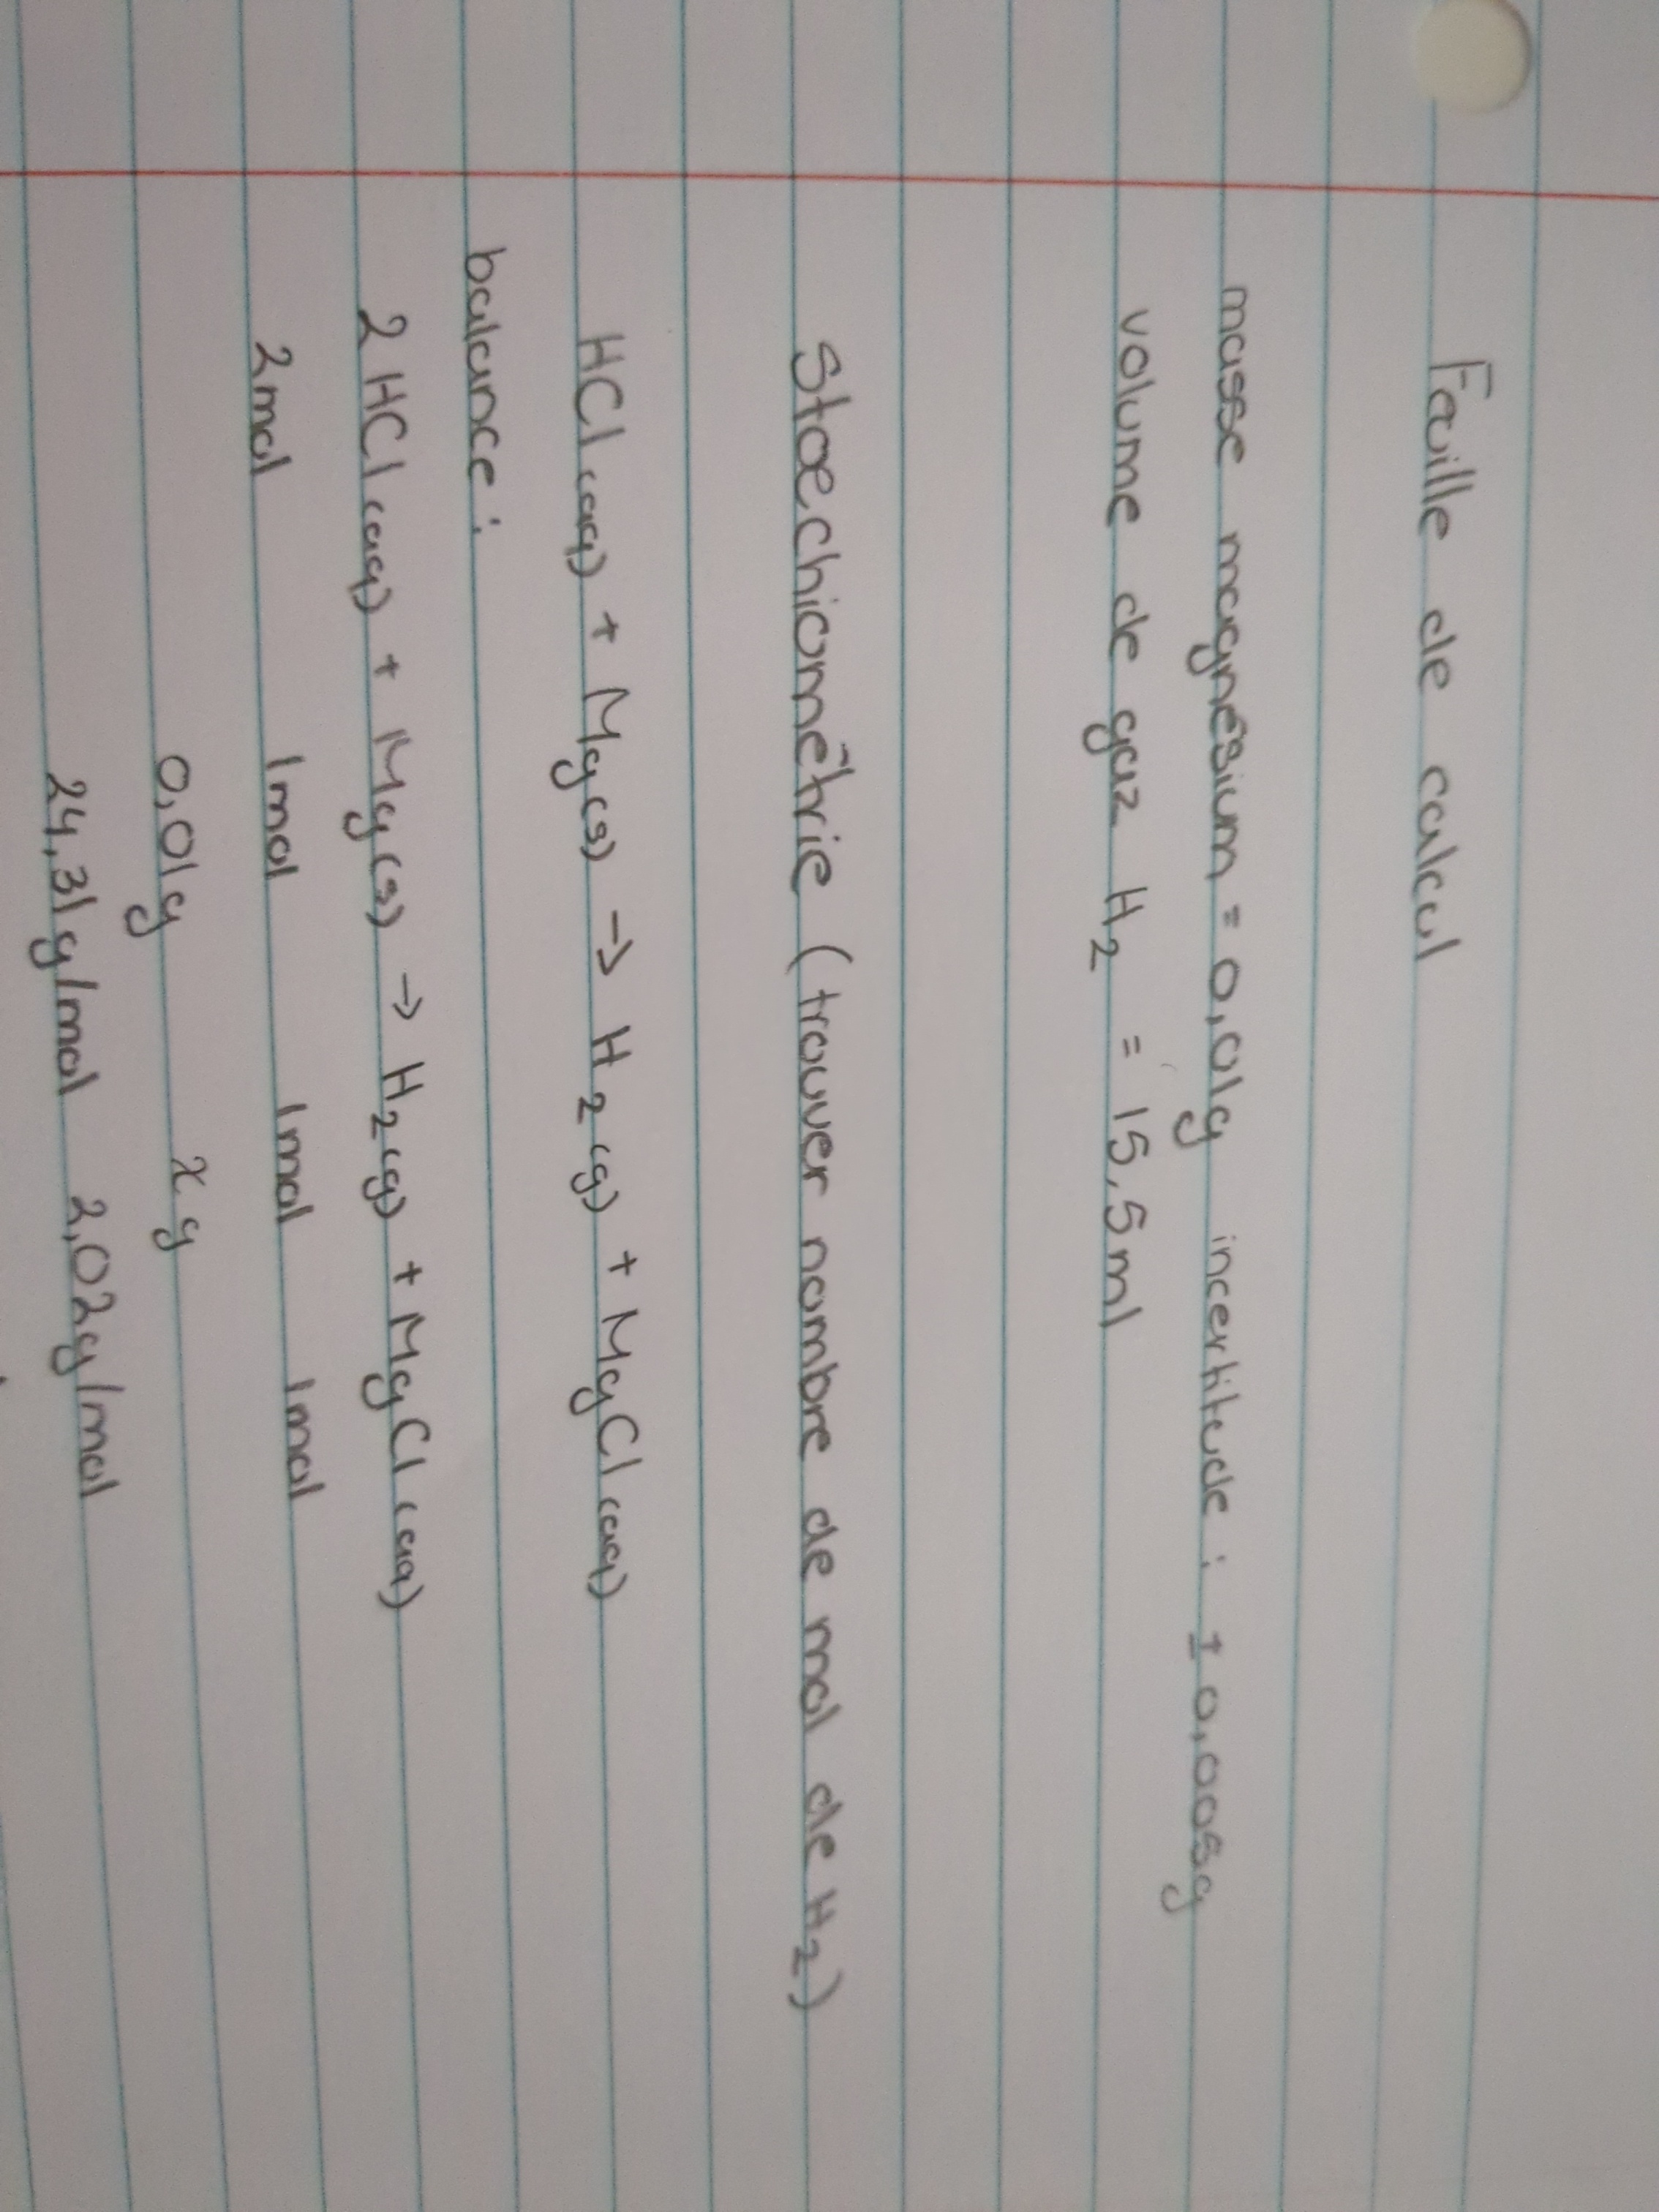 Feuille de calcul
masse magnésium = 0,01g incertitude : ± 0,005g
volume de gaz H2 = 15,5ml
Stoechiométrie (trouver nombre de mol de H2)
HCl(aq) + Mg(s) → H2(g) + MgCl(aq)
balance :
2HCl(aq) + Mg(s) → H2(g) + MgCl(aq)
2mol 1mol 1mol 1mol
0,01g x g
24,31g/mol 2,02g/mol